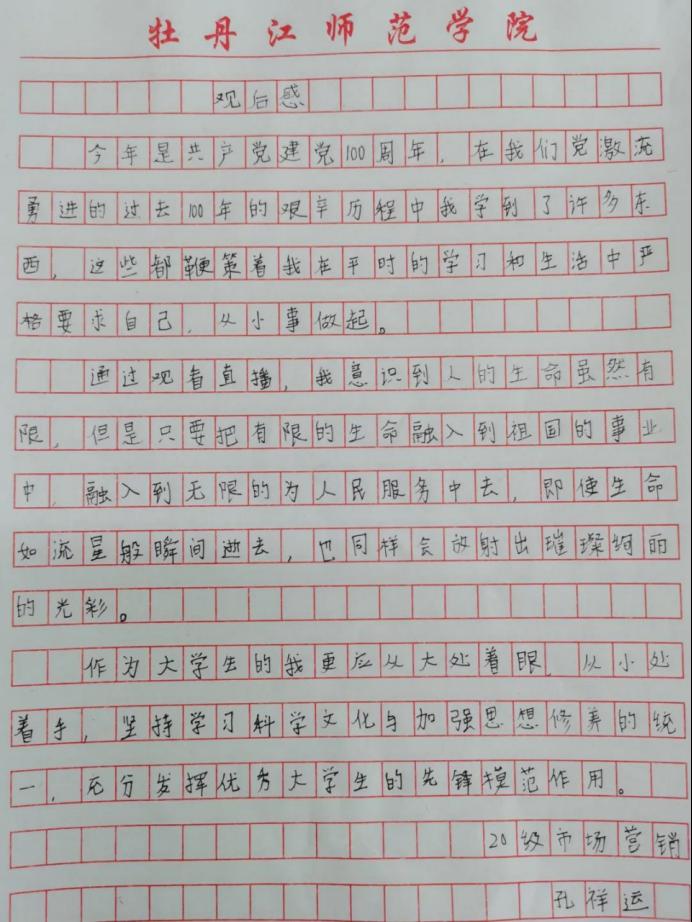 牡丹江师范学院
观后感
今年是共产党建党100周年，在我们党激流
勇进的过去100年的艰辛历程中我学到了许多东
西，这些都鞭策着我在平时的学习和生活中严
格要求自己，从小事做起。
通过观看直播，我意识到人的生命虽然有
限，但是只要把有限的生命融入到祖国的事业
中，融入到无限的为人民服务中去，即使生命
如流星般瞬间逝去，也同样会放射出璀璨绚丽
的光彩。
作为大学生的我更应从大处着眼，从小处
着手，坚持学习科学文化与加强思想修养的统
一，充分发挥优秀大学生的先锋模范作用。
20级市场营销
孔祥运